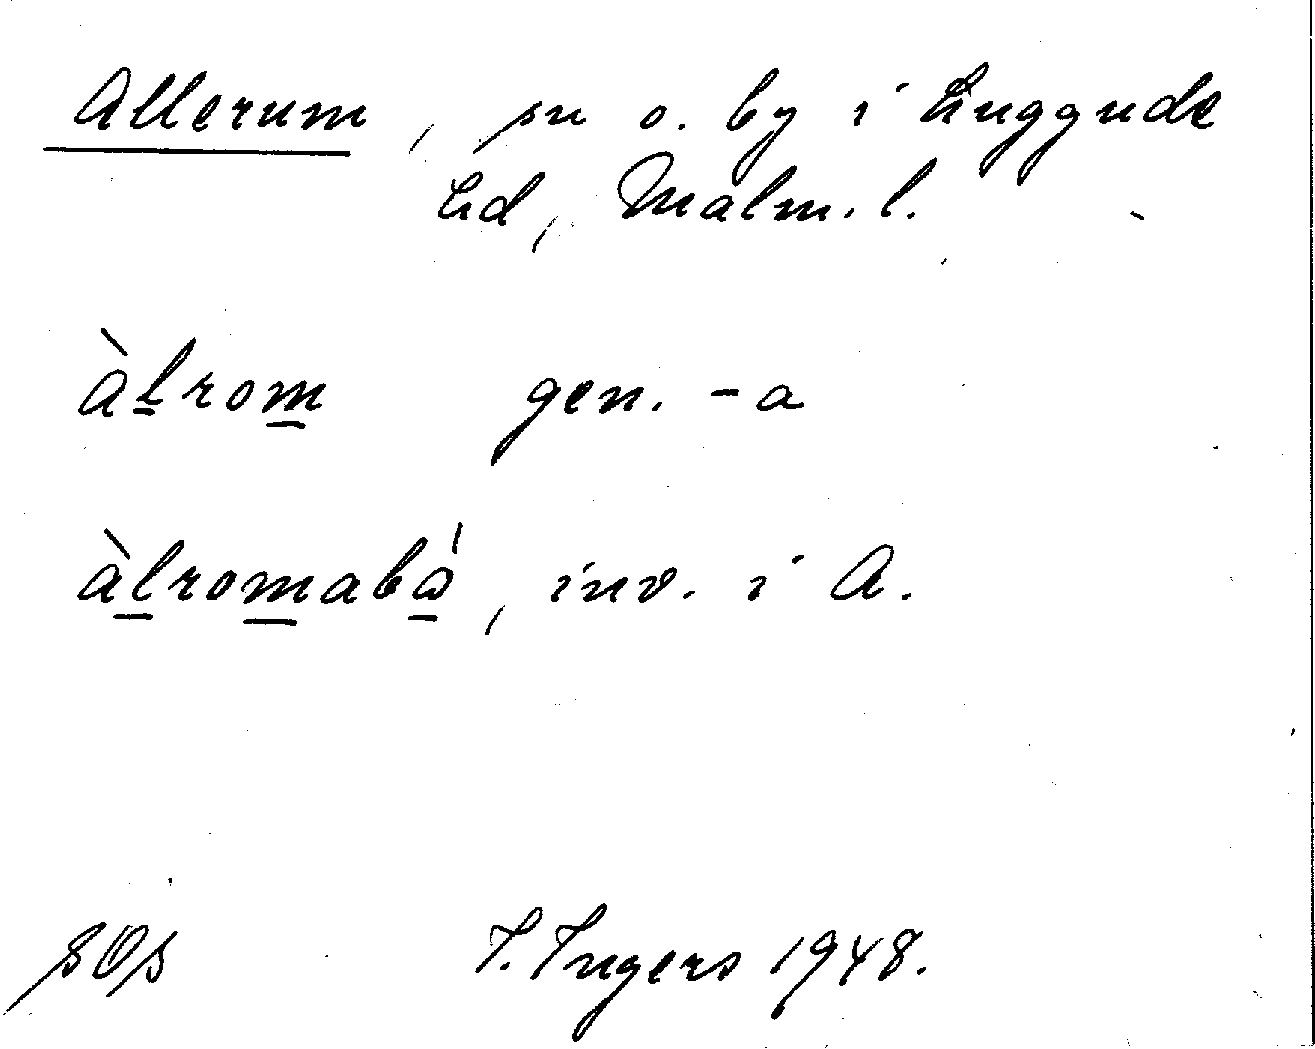 Allerum, sn o. by i Luggude
hd, Malm. l.
àl̲rom̲ gen. -a
àl̲rom̲abώ̲, inv. i A.
I. Ingers 1948.